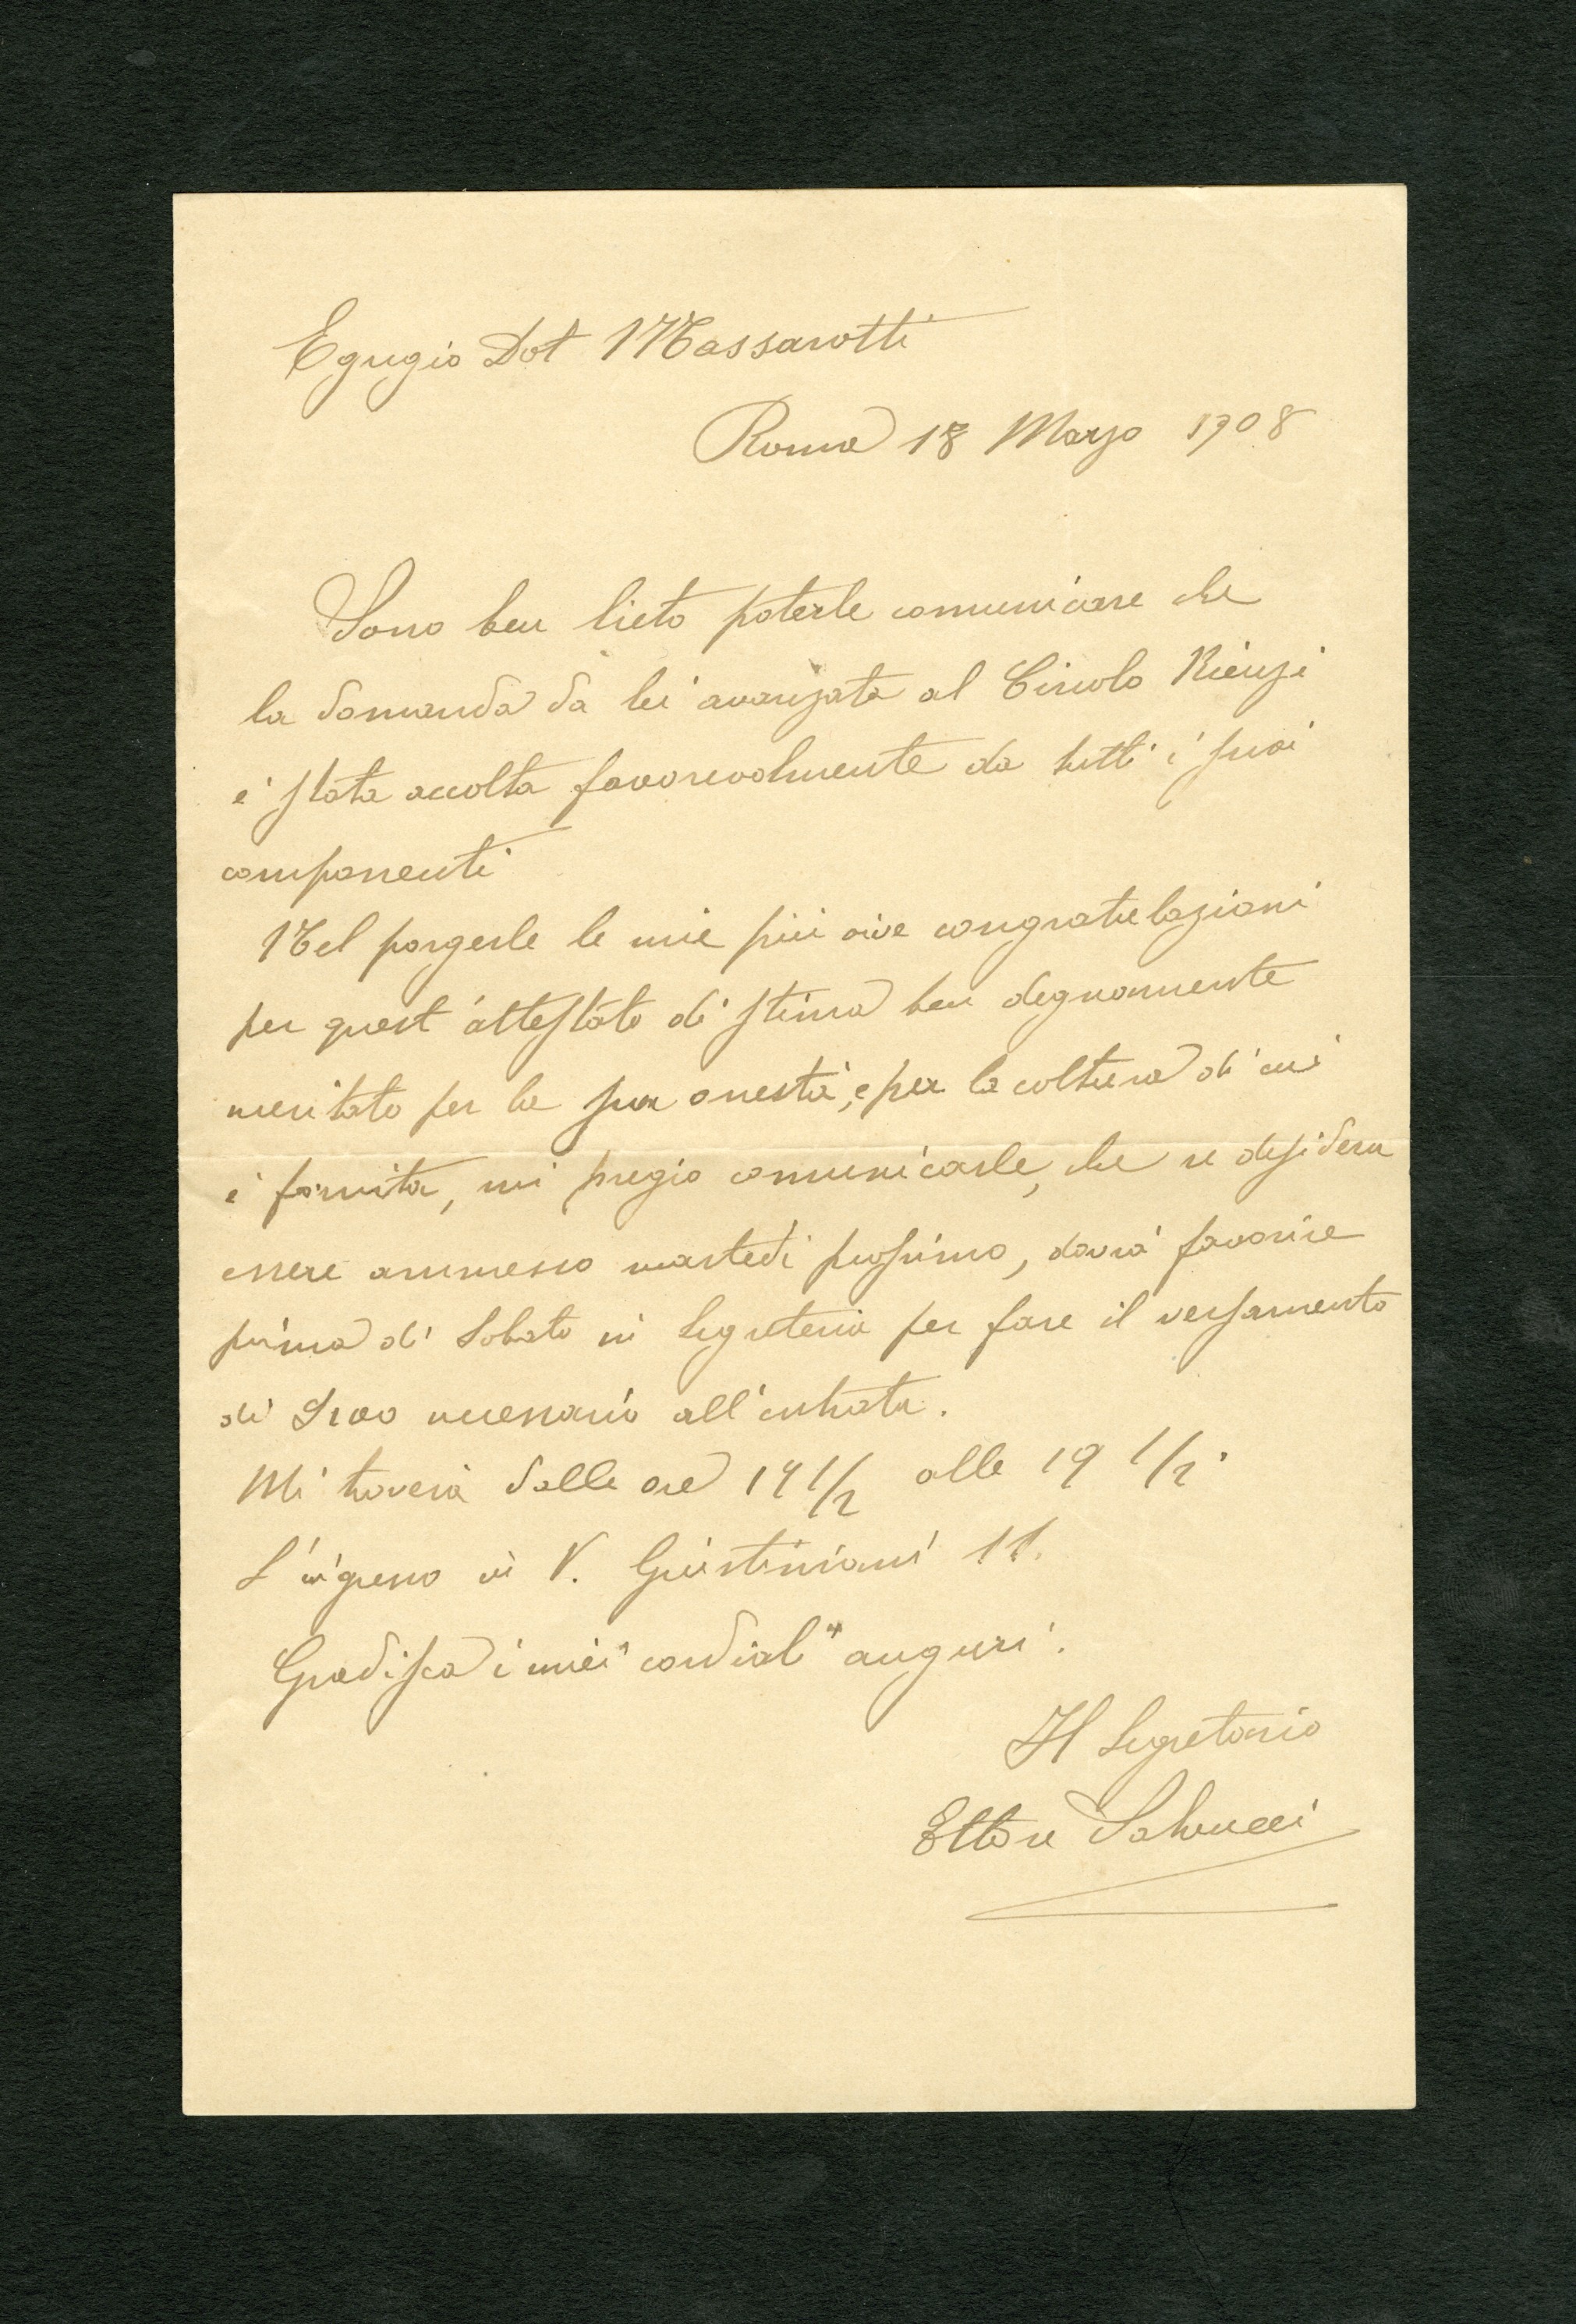 Egregio Dot Massarotti
Roma 18 Marzo 1908
Sono ben lieto poterle comunicare che
la domanda da lei avanzata al Circolo Rienzi
e' stata accolta favorevolmente da tutti i suoi
componenti
Nel porgerle le mie più vive congratulazioni
per quest'attestato di stima ben degnamente
meritato per la sua onestà, e per la coltura di cui
è fornita, mi pregio comunicarle, che se desidera
essere ammesso martedì prossimo, dovrà favorire
prima di Sabato in Segreteria per fare il versamento
di L100 necessario all'entrata.
Mi troverà dalle ore 14 1/2 alle 19 1/2.
L'ingresso in V. Giustiniani 11.
Gradisca i miei cordiali auguri.
Il Segretario
Ettore Salvucci